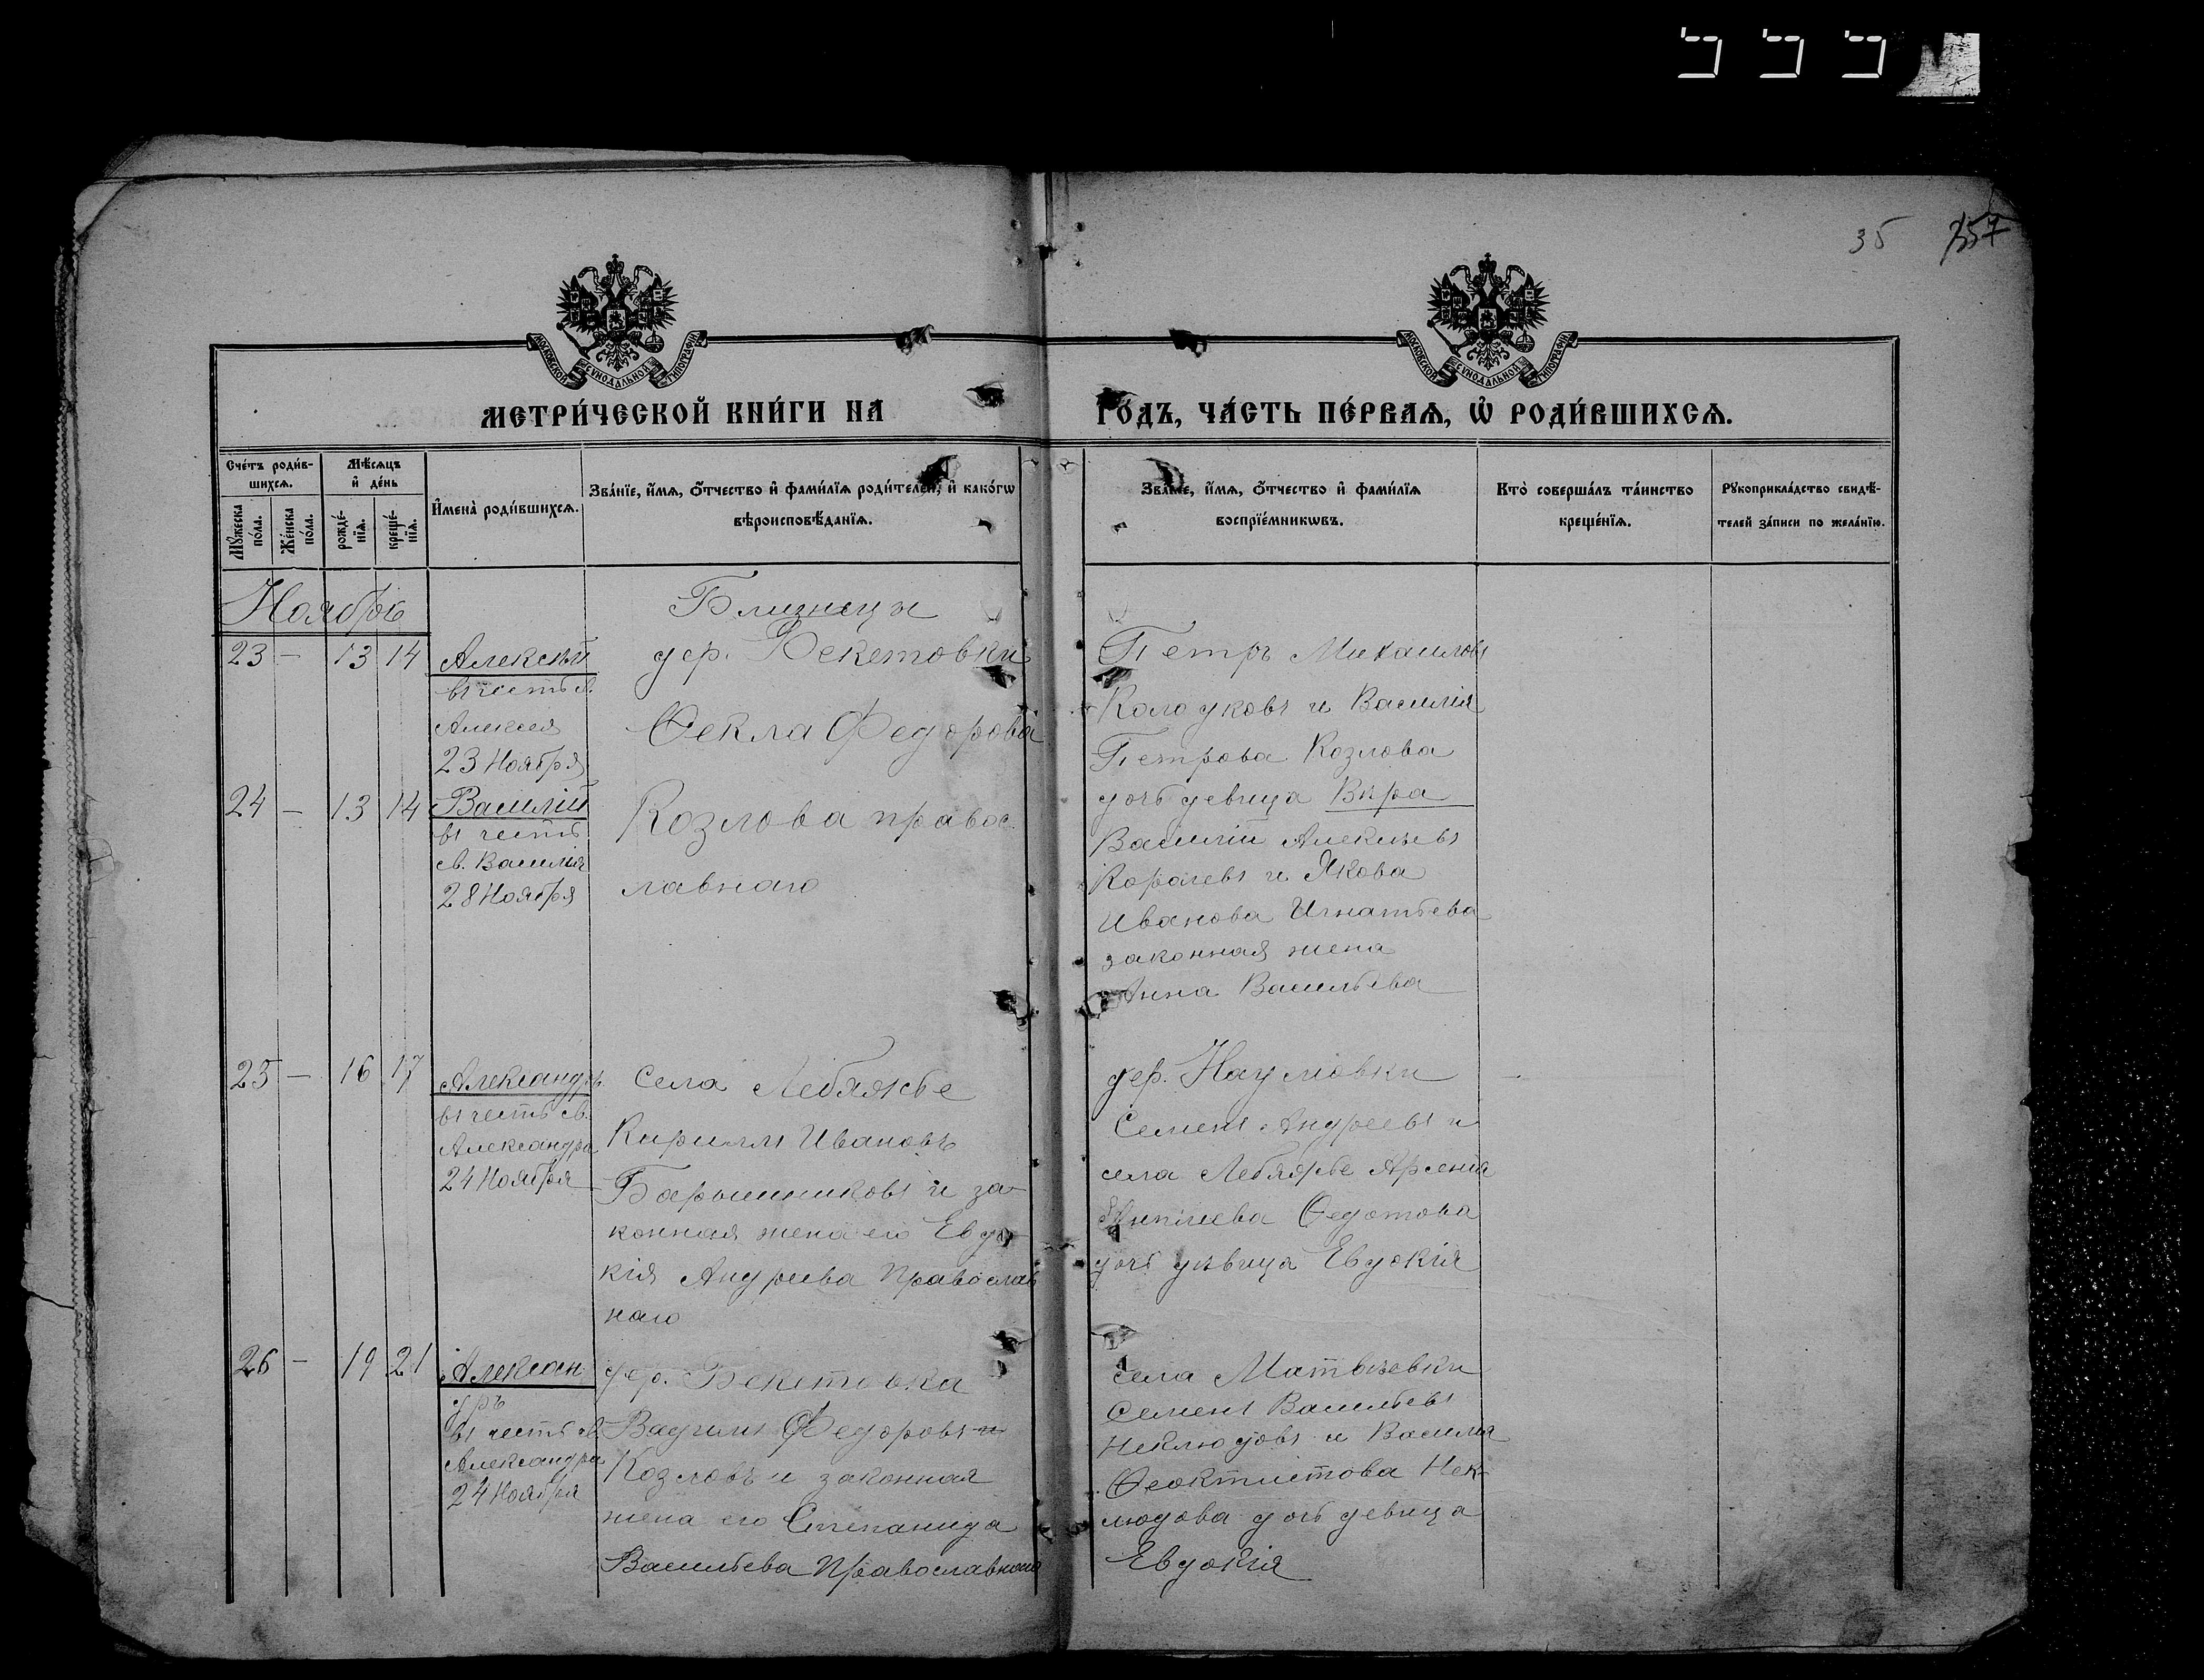 35 357
МОСКОВСКОЙ СѴНОДАЛЬНОЙ ТИПОГРАФІИ
МОСКОВСКОЙ СѴНОДАЛЬНОЙ ТИПОГРАФІИ
МЕТРИ́ЧЕСКОЙ КНИ́ГИ НА ГО́ДЪ, ЧА́СТЬ ПЕ́РВАѦ, Ѡ҆ РОДИ́ВШИХСѦ.
Сче́тъ роди́в-
шихсѧ.
Мѣ́сѧцъ
и҆ де́нь
Мꙋ́жеска по́ла.
Же́нска по́ла.
рожде́-
нїѧ.
креще́-
нїѧ.
И҆мена̀ роди́вшихсѧ.
Зва́нїе, и҆́мѧ, ѻ҆́тчество и҆ фами́лїѧ роди́телей, и҆ како́гѡ
вѣроисповѣ́данїѧ.
Зва́нїе, и҆́мѧ, ѻ҆́тчество и҆ фами́лїѧ
воспрїе́мникѡвъ.
Кто̀ соверша́лъ та́инство
креще́нїѧ.
Рꙋкоприкла́дство свидѣ́-
телей за́писи по жела́нїю.
Ноябрь
Близнецы
23 — 13 14
Алексѣй
въ честь св.
Алексея
23 Ноября
24 — 13 14
Василій
въ честь
св. Василія
28 Ноября
дер. Бекетовки
Ѳекла Федорова
Козлова правос
лавнаго
Петръ Михаиловъ
Колодковъ и Василія
Петрова Козлова
дочь девица Вѣра
Василій Алексѣевъ
Корачевъ и Якова
Иванова Игнатьева
законная жена
Анна Васильева
25 — 16 17
Александръ
въ честь св.
Александра
24 Ноября
села Лебяжье
Кириллъ Ивановъ
Барышниковъ и за-
конная жена его Евдо-
кія Андреева Православ
наго
дер. Наумовки
Семенъ Андреевъ и
села Лебяжье Арсенія
Ѳедотова
дочь дѣвица Евдокія
26 — 19 21
Алексан
дръ
въ честь св.
Александра
24 Ноября
дер. Бекетовка
Вадимъ Федоровъ и
Козловъ и законная
жена его Степанида
Васильева Православнаго
села Матвѣевки
Семенъ Васильевъ
Неклюдовъ и Василія
Ѳеоктистова Нек-
людова дочь девица
Евдокія